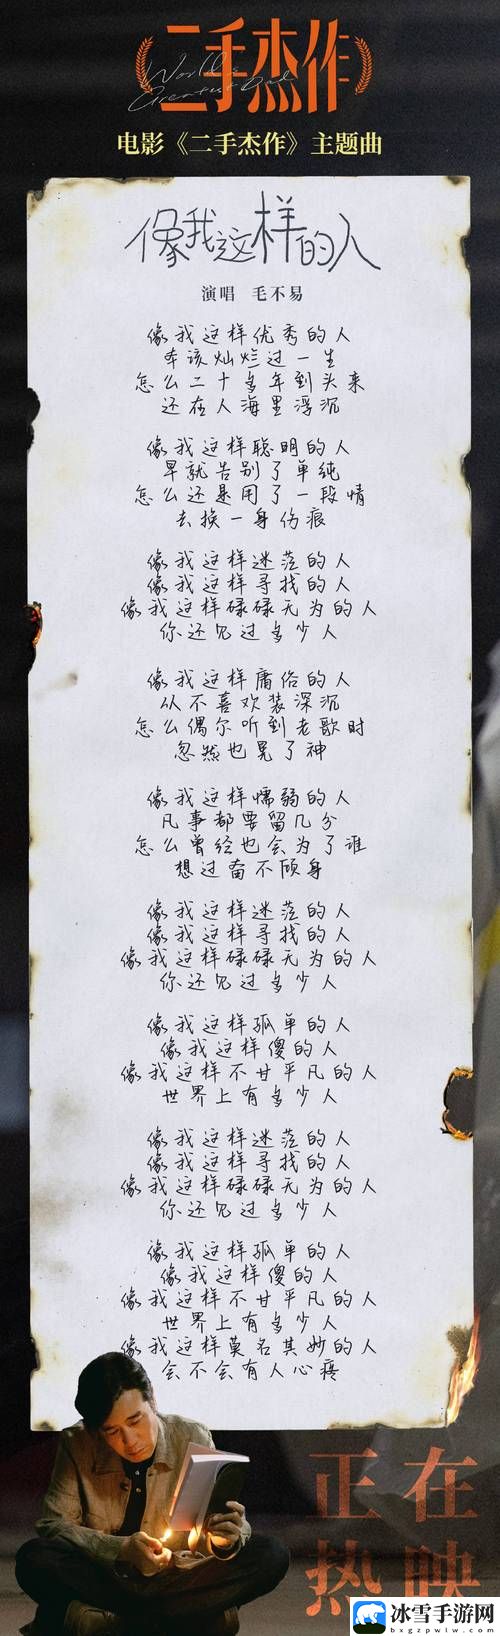 二手杰作
World's
Greatest Dad
电影《二手杰作》主题曲
像我这样的人
演唱 毛不易
像我这样优秀的人
本该灿烂过一生
怎么二十多年到头来
还在人海里浮沉
像我这样聪明的人
早就告别了单纯
怎么还是用了一段情
去换一身伤痕
像我这样迷茫的人
像我这样寻找的人
像我这样碌碌无为的人
你还见过多少人
像我这样庸俗的人
从不喜欢装深沉
怎么偶尔听到老歌时
忽然也晃了神
像我这样懦弱的人
凡事都要留几分
怎么曾经也会为了谁
想过奋不顾身
像我这样迷茫的人
像我这样寻找的人
像我这样碌碌无为的人
你还见过多少人
像我这样孤单的人
像我这样傻的人
像我这样不甘平凡的人
世界上有多少人
像我这样迷茫的人
像我这样寻找的人
像我这样碌碌无为的人
你还见过多少人
像我这样孤单的人
像我这样傻的人
像我这样不甘平凡的人
世界上有多少人
像我这样莫名其妙的人
会不会有人心疼
正在
热映
冰雪手游网
bxgzpwlw.com